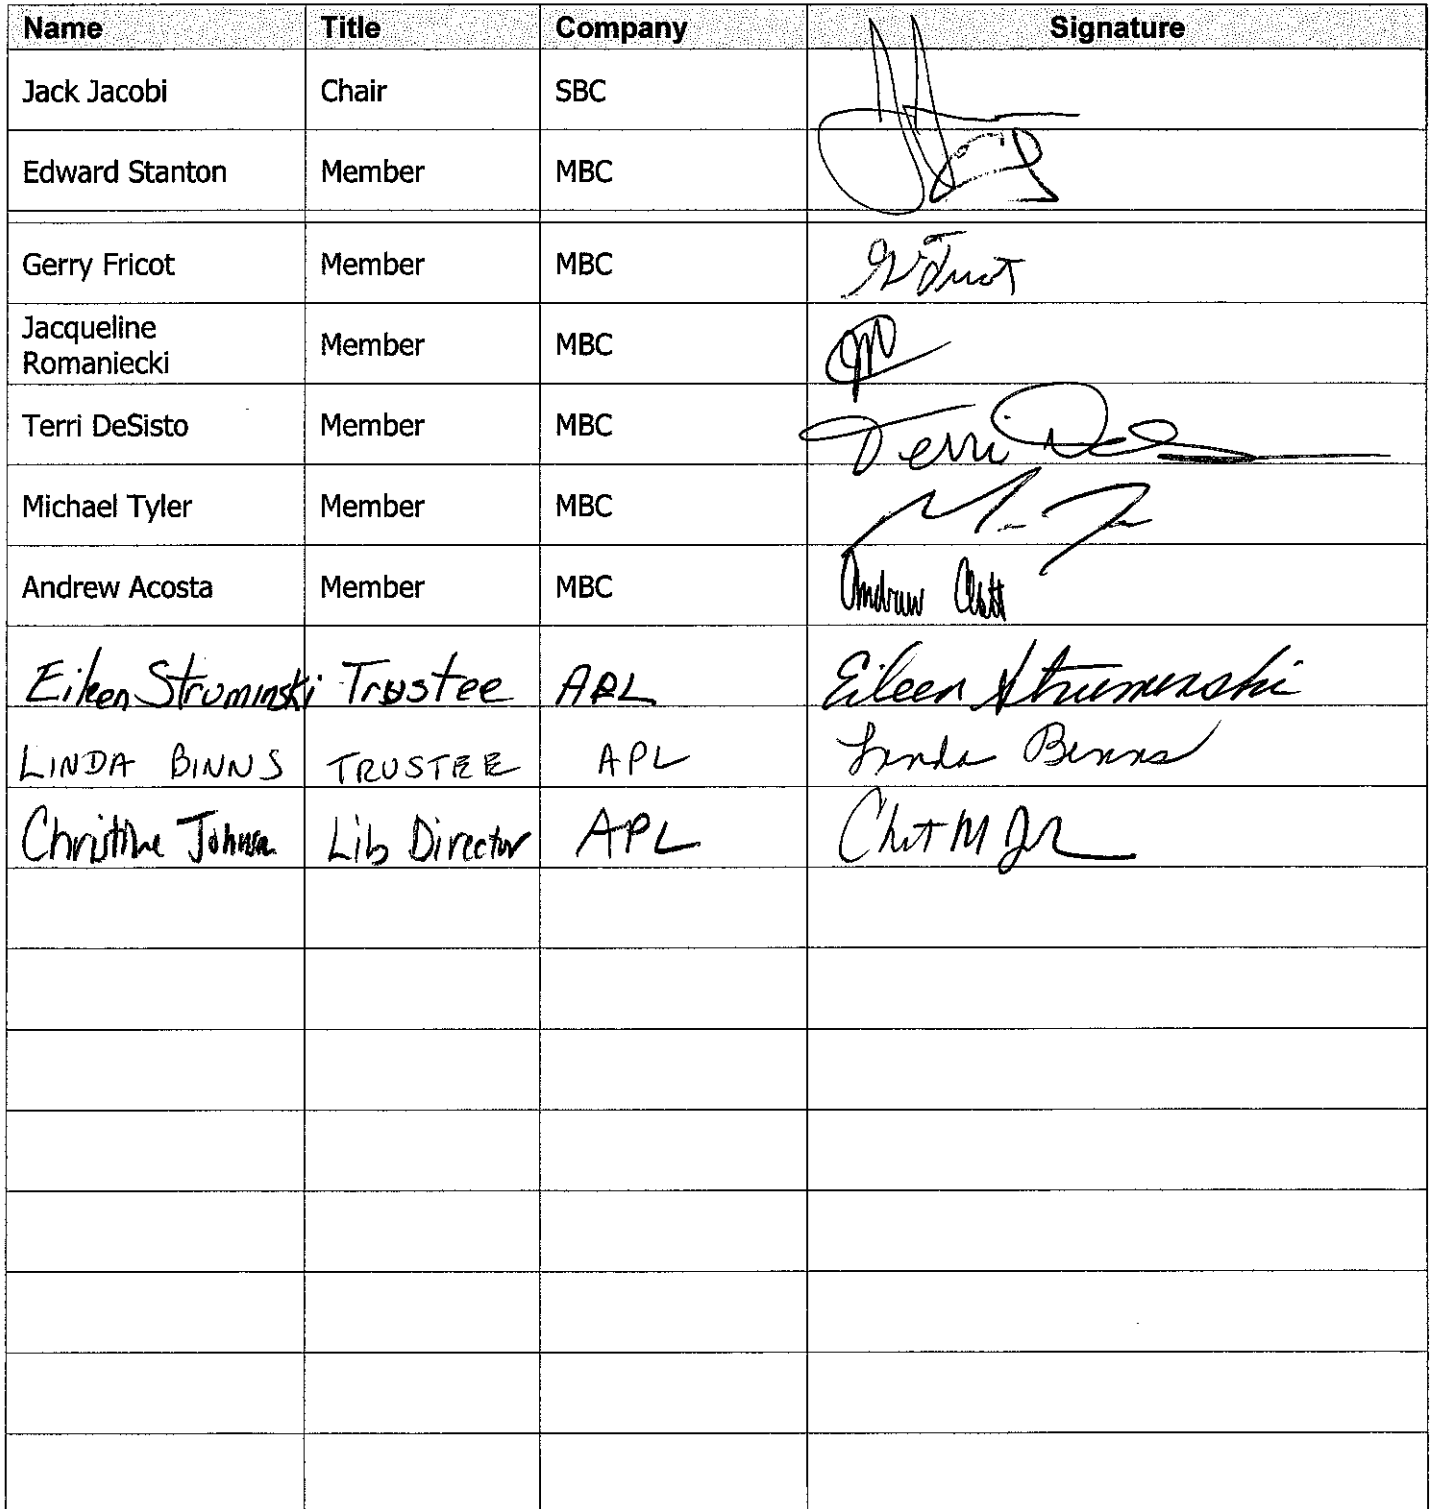 Name Title Company Signature
Jack Jacobi Chair SBC
Edward Stanton Member MBC
Gerry Fricot Member MBC
Jacqueline
Romaniecki Member MBC
Terri DeSisto Member MBC Terri
Michael Tyler Member MBC
Andrew Acosta Member MBC Andrew
Eileen Struminski Trustee APL Eileen Struminski
LINDA BINNS TRUSTEE APL Linda Binns
Christine Johnson Lib Director APL